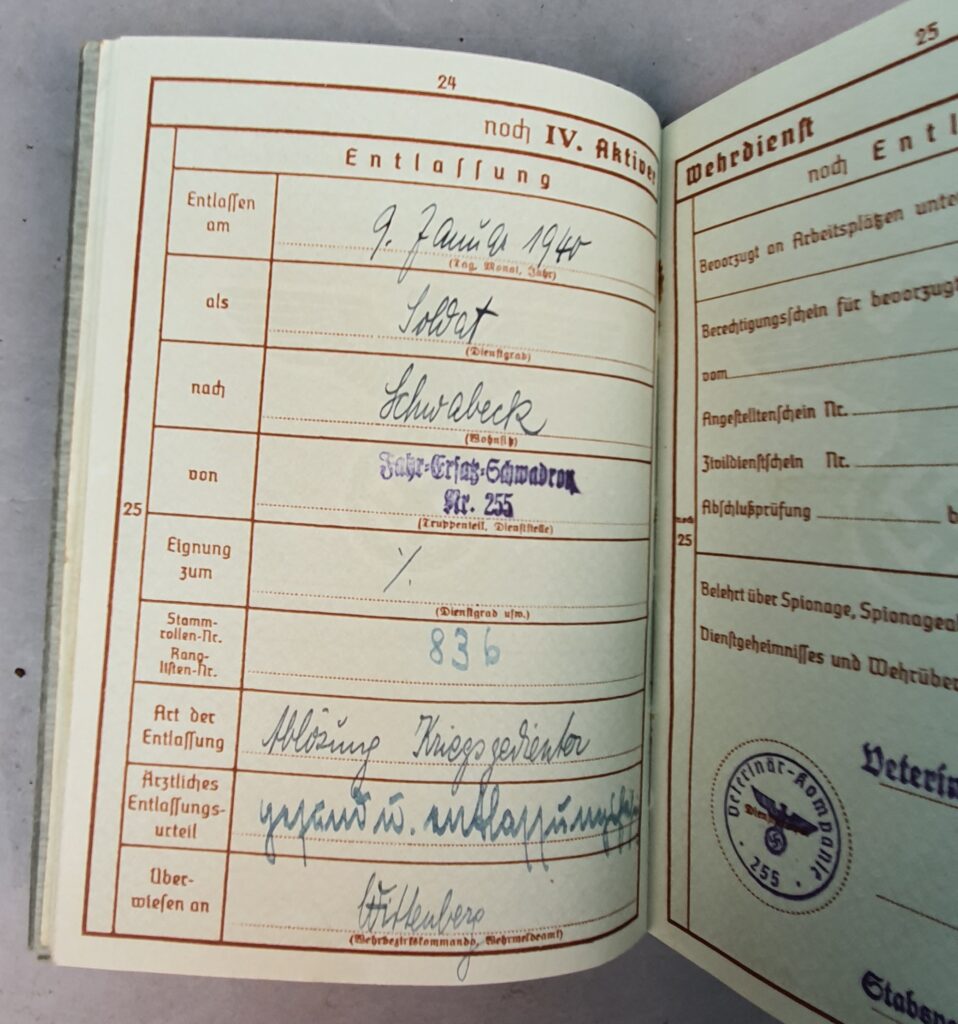 24
noch IV. Aktiver
Entlassung
25
Entlassen
am
9. Januar 1940
(Tag, Monat, Jahr)
als
Soldat
(Dienstgrad)
nach
Schwabeck
(Wohnsitz)
von
Fahr-Ersatz-Schwadron
Nr. 255
(Truppenteil, Dienststelle)
Eignung
zum
·/.
(Dienstgrad usw.)
Stamm-
rollen-Nr.
Rang-
listen-Nr.
836
Art der
Entlassung
Ablösung Kriegsgedienter
Ärztliches
Entlassungs-
urteil
gesund u.
Über-
wiesen an
Wittenberg
(Wehrbezirkskommando, Wehrmeldeamt)
25
Wehrdienst
noch Entl
Bevorzugt an Arbeitsplätzen unte
Berechtigungsschein für bevorzugt
vom
Angestelltenschein Nr.
Zivildienstschein Nr.
Abschlußprüfung b
noch
25
Belehrt über Spionage, Spionagea
Dienstgeheimnisses und Wehrübe
Veterin
Veterinär-Kompanie
· 255 ·
Stabs